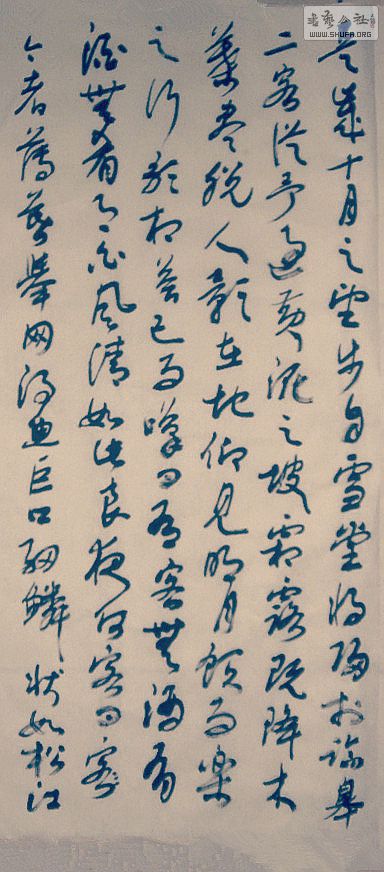 書藝公社
WWW.SHUFA.ORG
是歲十月之望步自雪堂將歸於臨皋
二客從予過黃泥之坡霜露既降木
葉盡脫人影在地仰見明月顧而樂
之行歌相答已而嘆曰有客無酒有
酒無肴月白風清如此良夜何客曰客
今者薄暮舉网得魚巨口細鱗狀如松江